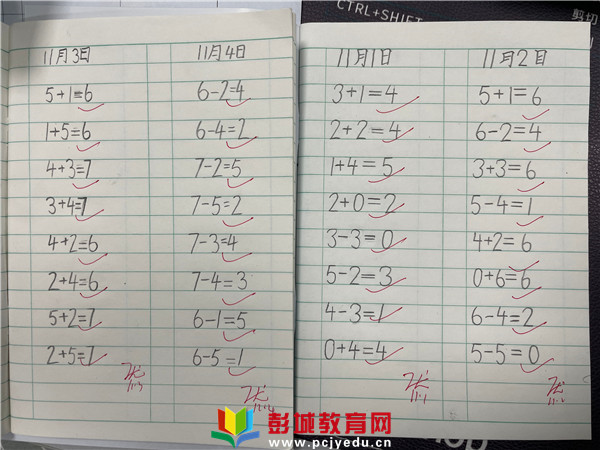 CTRL+SHIFT
剪切
11月3日
5+1=6
1+5=6
4+3=7
3+4=7
4+2=6
2+4=6
5+2=7
2+5=7
优
11.3
11月4日
6-2=4
6-4=2
7-2=5
7-5=2
7-3=4
7-4=3
6-1=5
6-5=1
优
11.4
11月1日
3+1=4
2+2=4
1+4=5
2+0=2
3-3=0
5-2=3
4-3=1
0+4=4
优
11.1
11月2日
5+1=6
6-2=4
3+3=6
5-4=1
4+2=6
0+6=6
6-4=2
5-5=0
优
11.2
彭城教育网
www.pcjyedu.cn